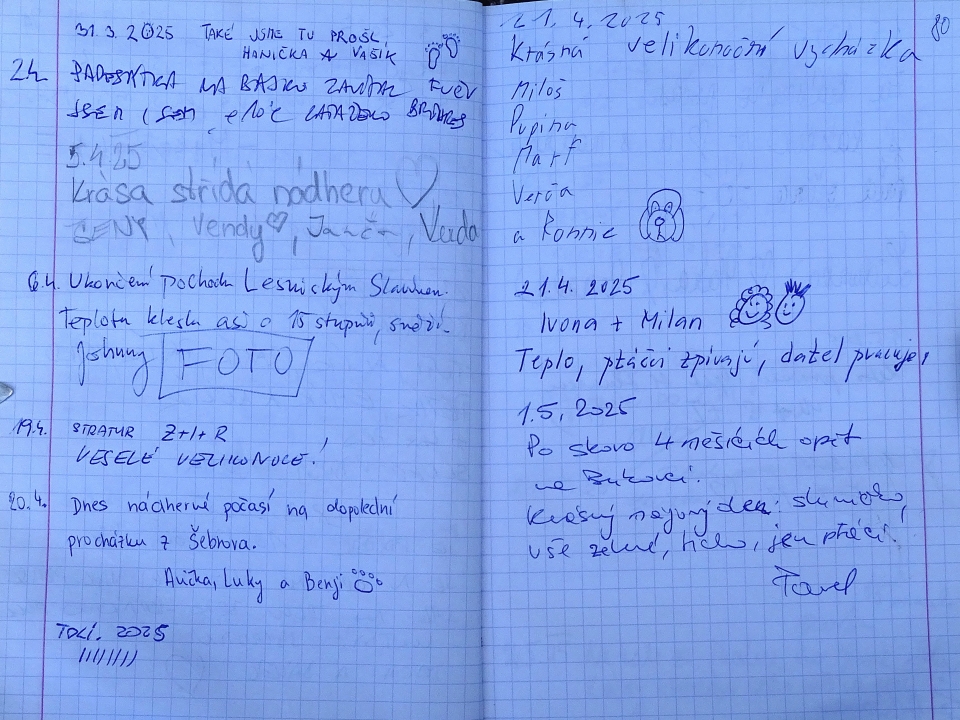 31.3.2025 TAKÉ JSME TU PROŠLI,
HANIČKA A VAŠÍK
2h
NA
5.4.25
Krása střídá nádheru
Vendy, Verda
6.4. Ukončení pochodu Lesnickým
Teplota klesla asi o 15 stupňů, sněží.
Johnny FOTO
19.4. Z+I+R
VESELÉ VELIKONOCE!
20.4. Dnes nádherné počasí na dopolední
procházku z Šebrova.
Anička, Luky a Benji
2025
80
21.4.2025
Krásná velikonoční vycházka
Miloš
Pupina
Marť
Verča
a Ronnie
21.4. 2025
Ivona + Milan
Teplo, ptáčci zpívají, datel pracuje,
1.5.2025
Po skoro 4 měsících opět
na Bukovci.
Krásný májový den: sluníčko,
vše zelené, ticho, jen ptáci!
Pavel